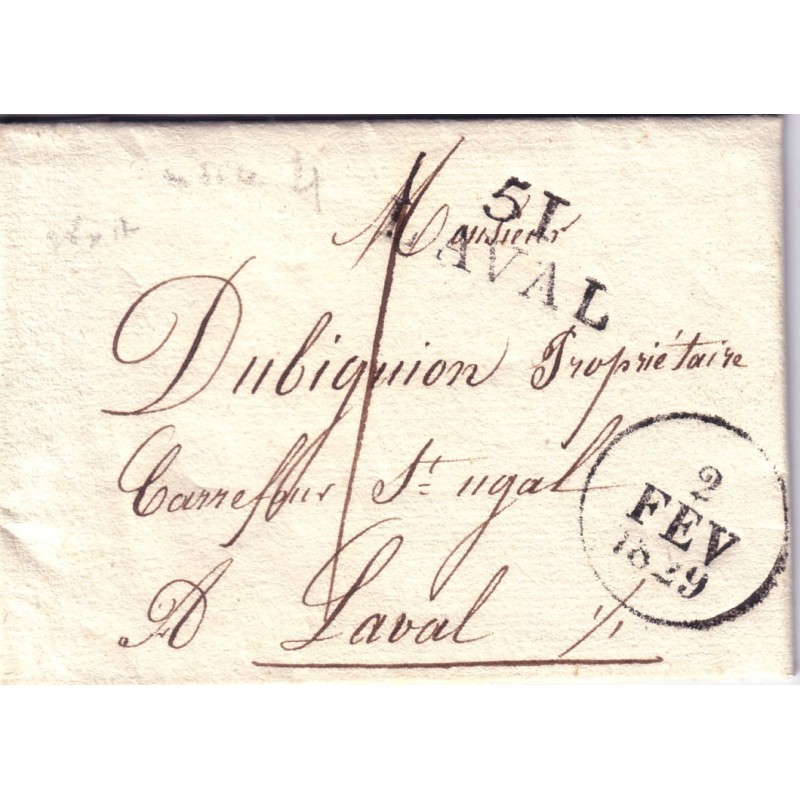 51
LAVAL
Monsieur
Dubiguion Propriétaire
Carrefour St ugal
A Laval
2
FEV
1829